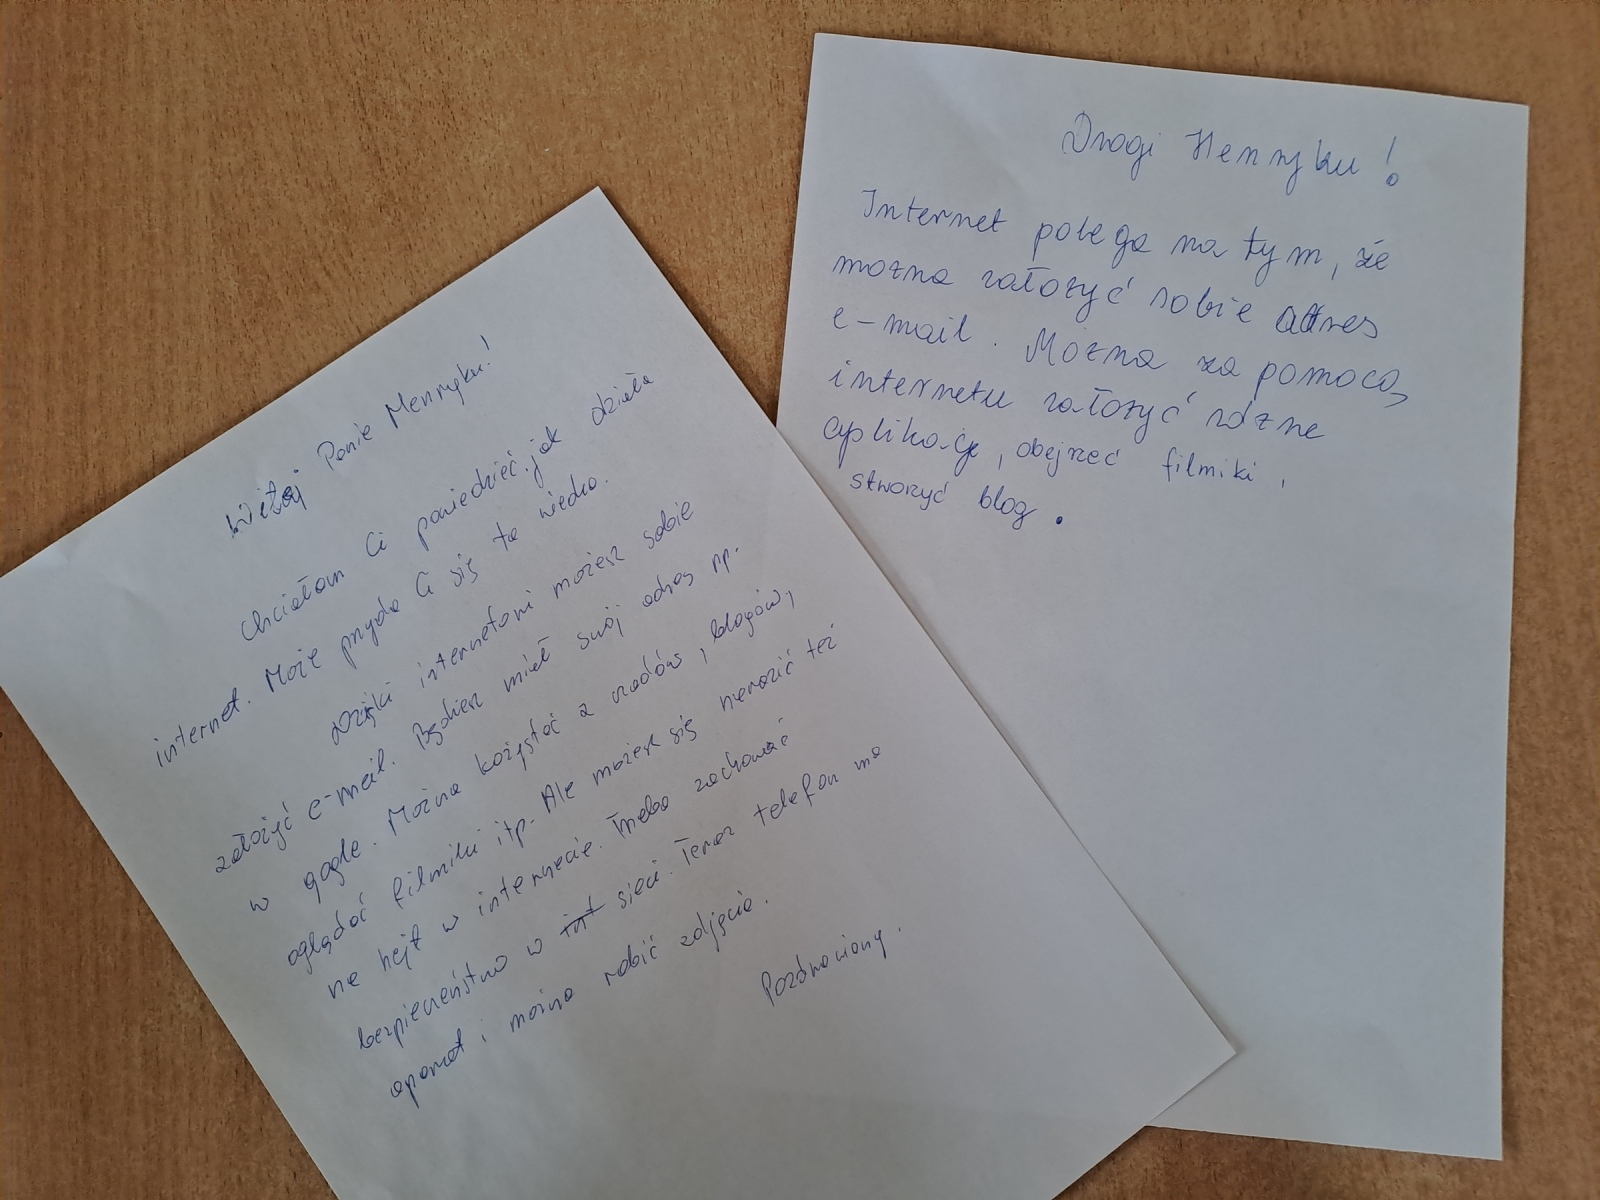 Witaj Panie Henryku!
Chciałam Ci powiedzieć jak działa
internet. Może przyda Ci się ta wiedza.
Dzięki internetowi możesz sobie
założyć e-mail. Będziesz miał swój adres np.
w gogle. Można kożystać z czadów, blogów,
oglądać filmiki itp. Ale możesz się narazić też
na hejt w internecie. Trzeba zachować
bezpieczeństwo w int sieci. Teraz telefon ma
aparat i można robić zdjęcia.
Pozdrowiony.
Drogi Henryku!
Internet polega na tym, że
mozna założyć sobie adres
e-mail. Mozna za pomocą
internetu założyć różne
aplikacje, obejrzeć filmiki,
stworzyć blog.